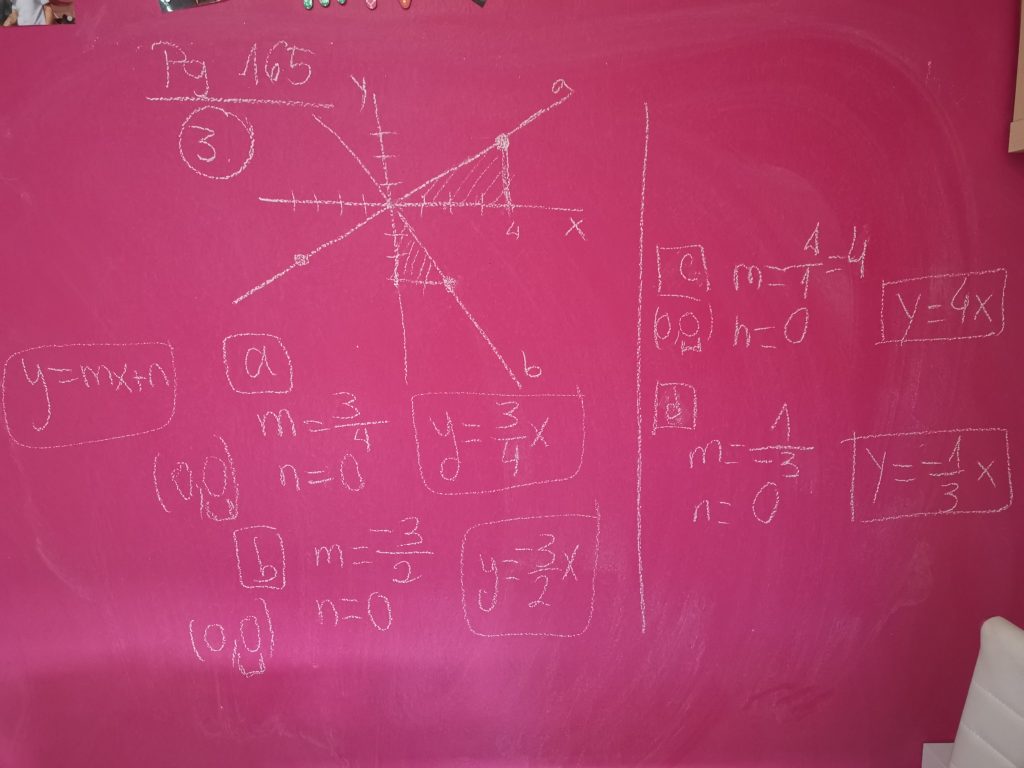 Pg 165
3.
y
a
4
x
b
y=mx+n
a
m=3/4
n=0
(0,0)
y=3/4x
b
m=-3/2
n=0
(0,0)
y=-3/2x
c
m=4/1=4
(0,0)
n=0
y=4x
d
m=1/-3
n=0
y=-1/3x